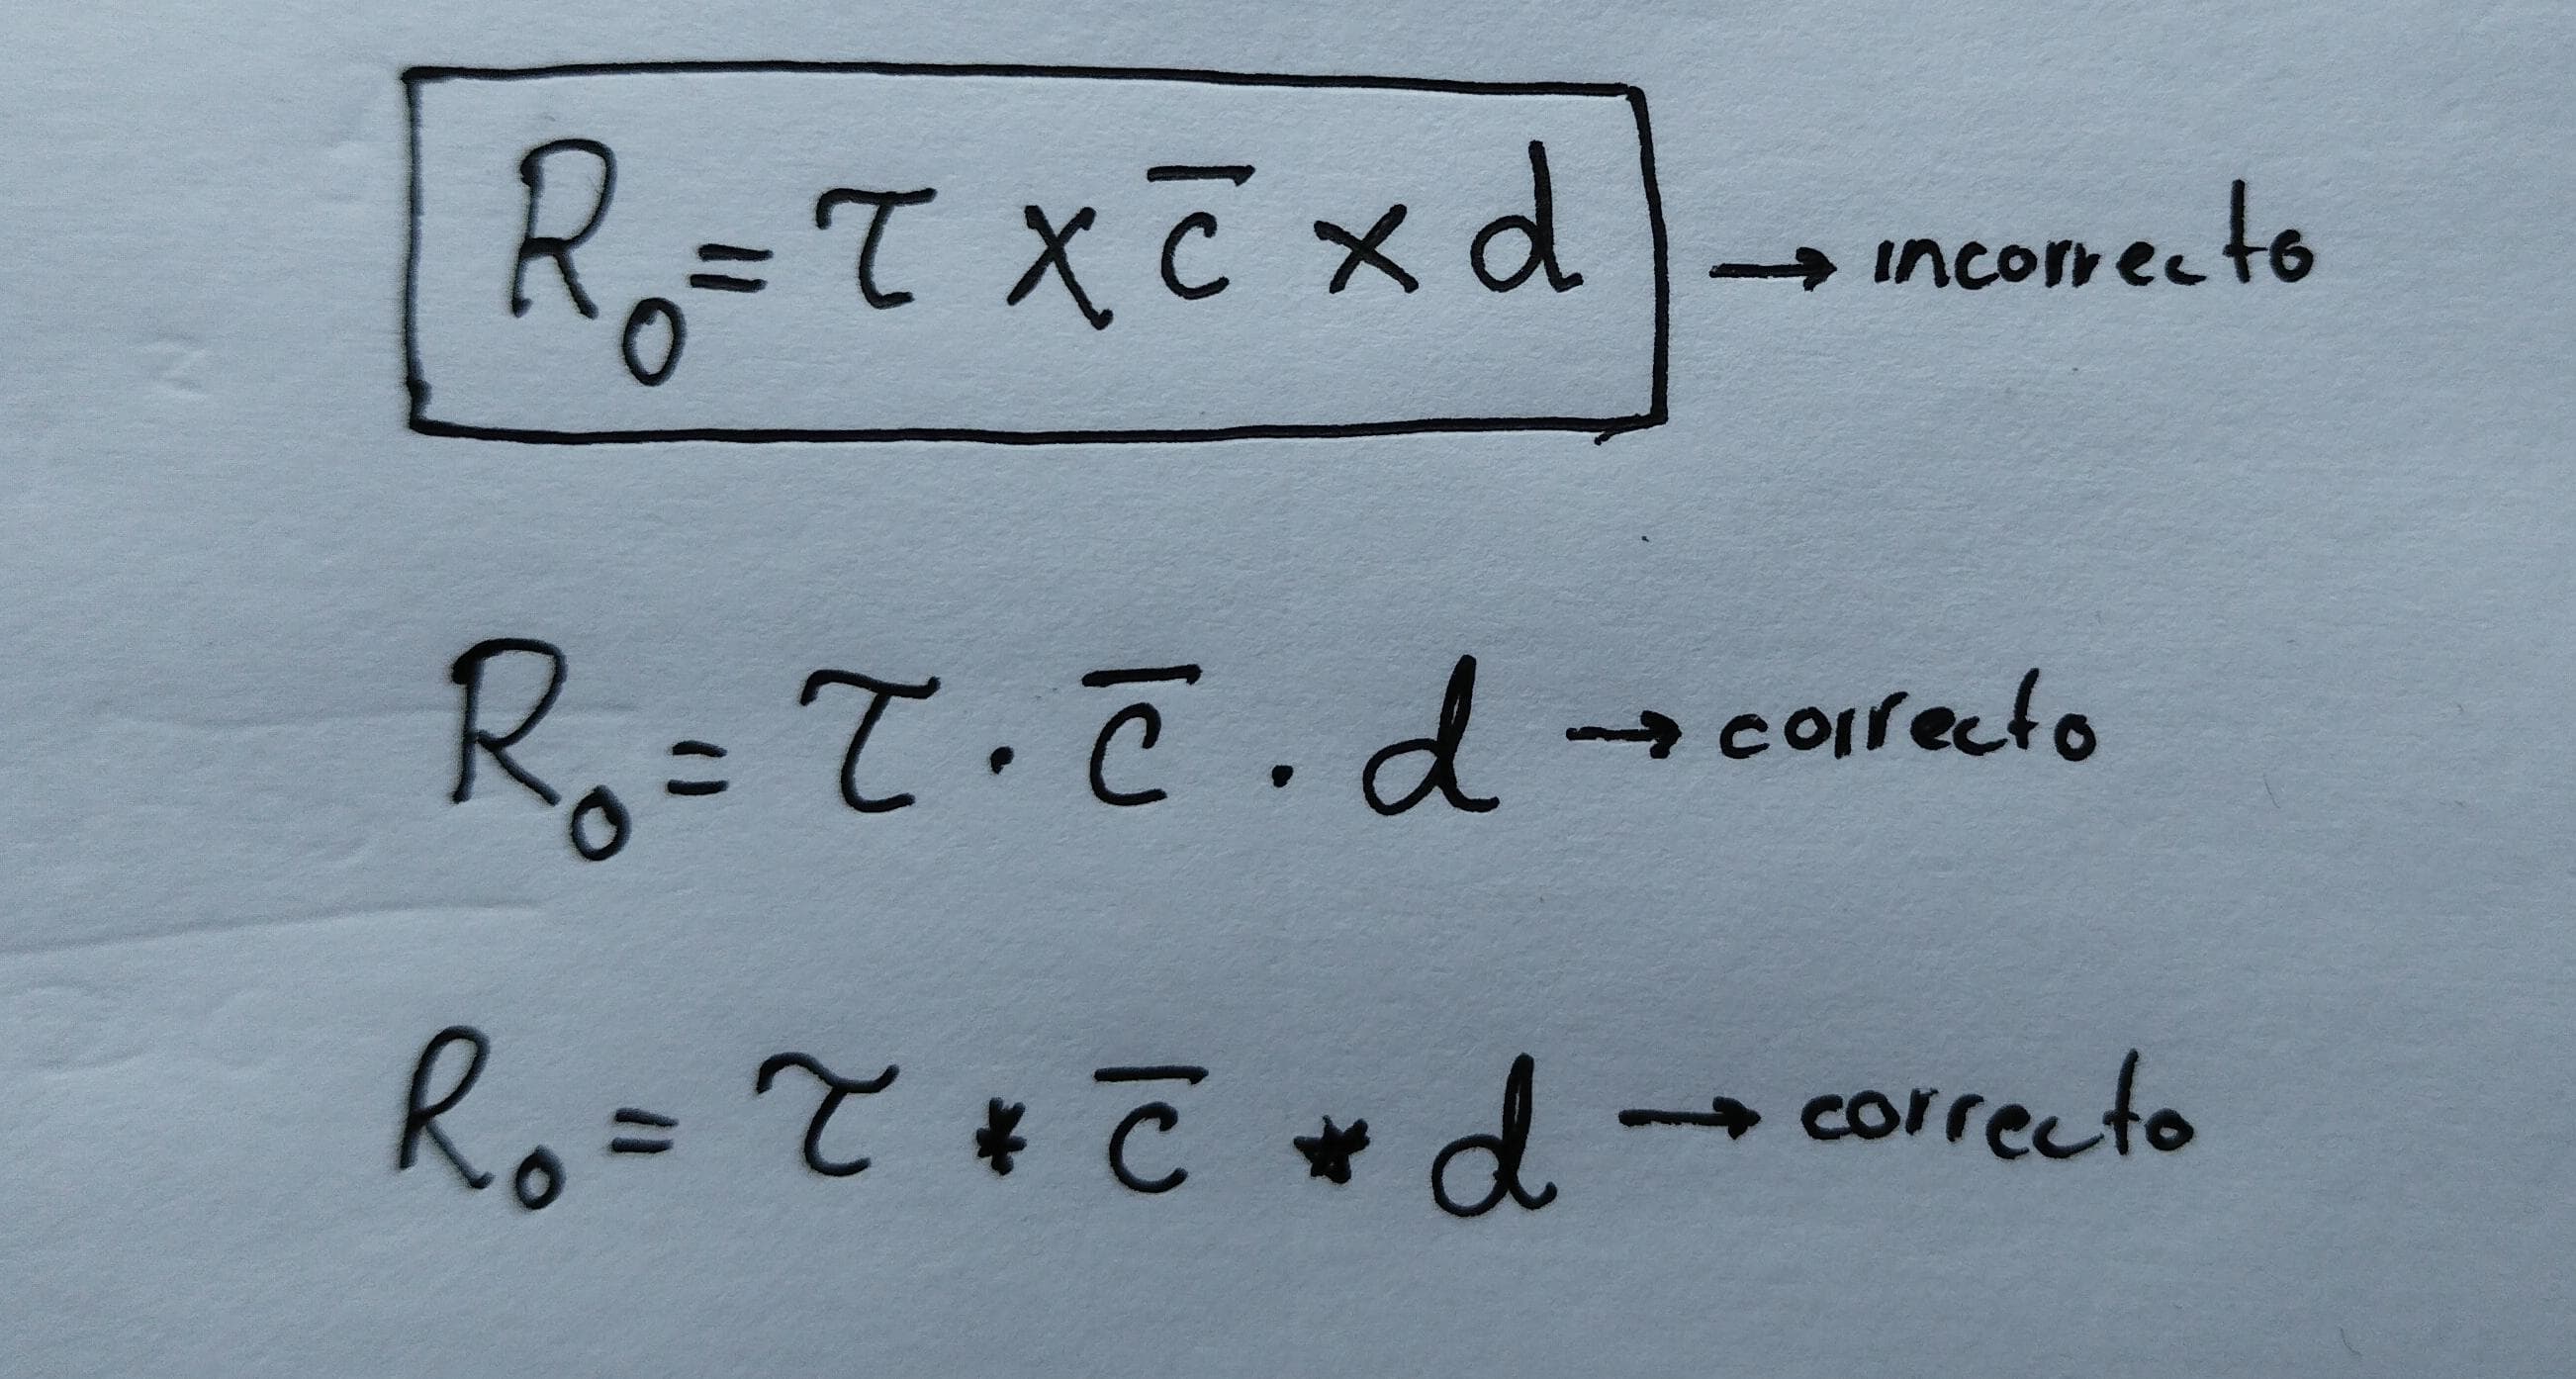 R₀ = τ × c̄ × d → incorrecto
R₀ = τ · c̄ · d → correcto
R₀ = τ * c̄ * d → correcto